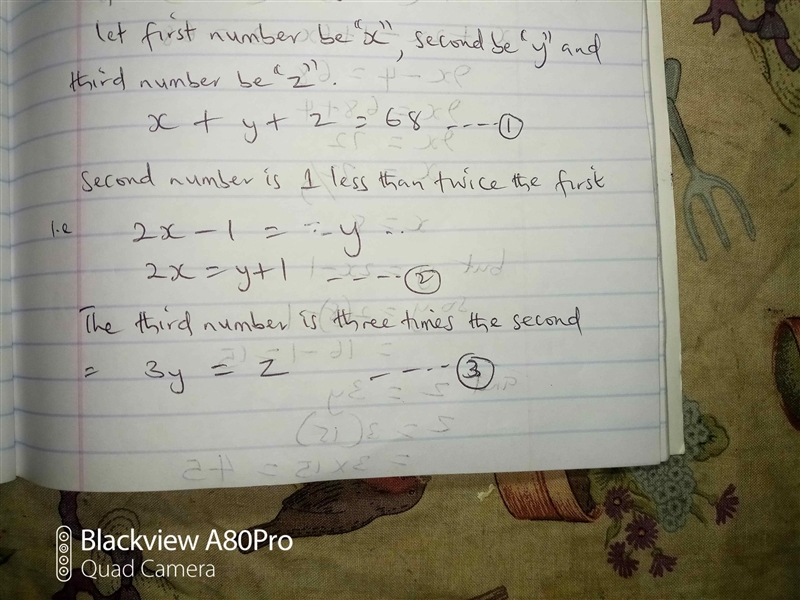 let first number be "x", second be "y" and
third number be "z".
x + y + z = 68 ----- ①
Second number is 1 less than twice the first
i.e 2x - 1 = y
2x = y+1 ----- ②
The third number is three times the second
= 3y = z ----- ③
Blackview A80Pro
Quad Camera